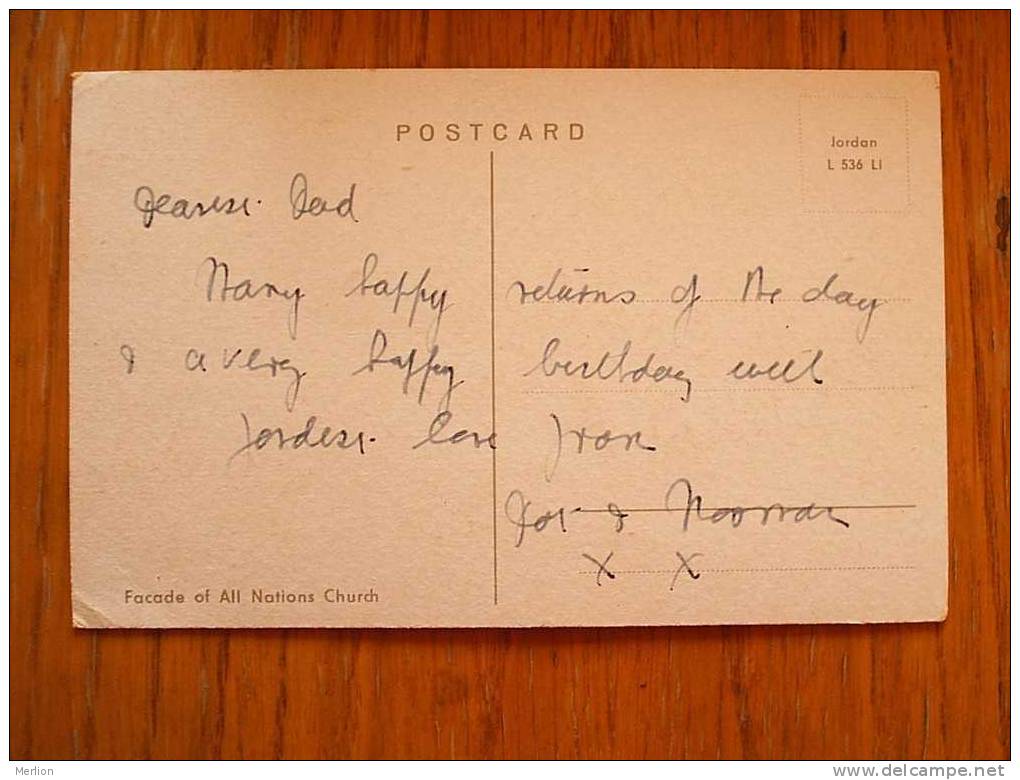 POSTCARD
Jordan
L 536 LI
Dearest Dad
Many happy returns of the day
& a very happy birthday with
fondest love from
Dot & Norman
X X
Facade of All Nations Church
Merlion
www.delcampe.net